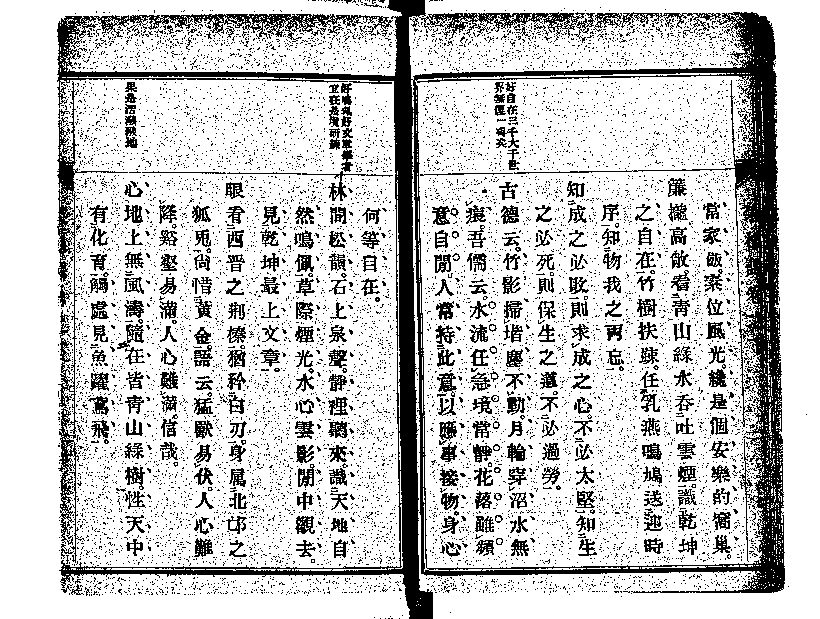 好自在三千大千世
界無復一項矣
當家飯。案位風光。纔是個安樂的窩巢。
簾櫳高敞。看靑山綠水吞吐雲煙。識乾坤
之自在。竹樹扶疎。任乳燕鳴鳩送迎時
序。知物我之兩忘。
知成之必敗。則求成之心不必太堅。知生
之必死。則保生之道。不必過勞。
古德云。竹影掃堦塵不動。月輪穿沼水無
痕。吾儒云。水流任急境常靜。花落雖頻
意自閒。人常持此意。以應事接物。身心
何等自在。
好鳴佩好文章學者
宜在是處研
林間松韻。石上泉聲。靜裡聽來。識天地自
然鳴佩。草際煙光。水心雲影。閒中觀去。
見乾坤最上文章。
眼看西晋之荆榛。猶矜白刃。身属北邙之
狐兎。尙惜黃金。語云。猛獸易伏。人心難
降。谿壑易滿。人心難滿。信哉。
心地上無風濤。隨在皆靑山綠樹。性天中
有化育。觸處見魚躍鳶飛。